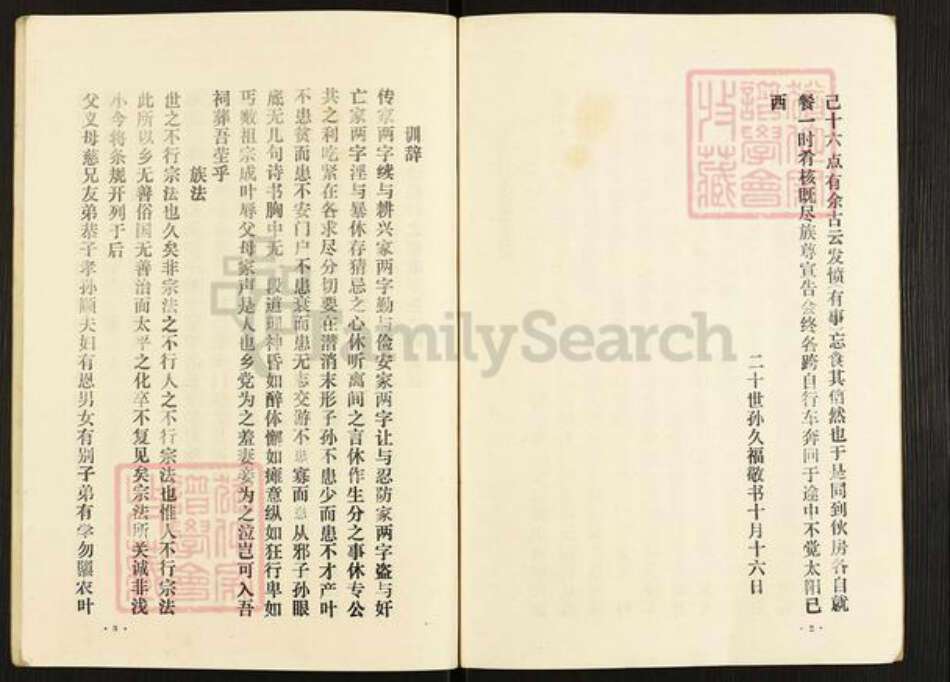 己十六点有余古云发愤有事忘食其信然也于是同到伙房各自就
餐一时肴核既尽族尊宣告会终各跨自行车奔回于途中不觉太阳已
西
二十世孙久福敬书十月十六日
·2·
训辞
传家两字续与耕兴家两字勤与俭安家两字让与忍防家两字盗与奸
亡家两字淫与暴休存猜忌之心休听离间之言休作生分之事休专公
共之利吃紧在各求尽分切要在潜消末形子孙不患少而患不才产叶
不患贫而患不安门户不患衰而患无志交游不患寡而患从邪子孙眼
底无几句诗书胸中无一段道理神昏如醉体懈如瘫意纵如狂行卑如
丐败祖宗成叶辱父母家声是人也乡党为之羞妻妾为之泣岂可入吾
祠葬吾茔乎
族法
世之不行宗法也久矣非宗法之不行人之不行宗法也惟人不行宗法
此所以乡无善俗国无善治面太平之化卒不复见矣宗法所关诚非浅
小今将条规开列于后
父义母慈兄友弟恭子孝孙顺夫妇有恩男女有别子弟有学勿隳农叶
·3·
FamilySearch
譜學會
收藏